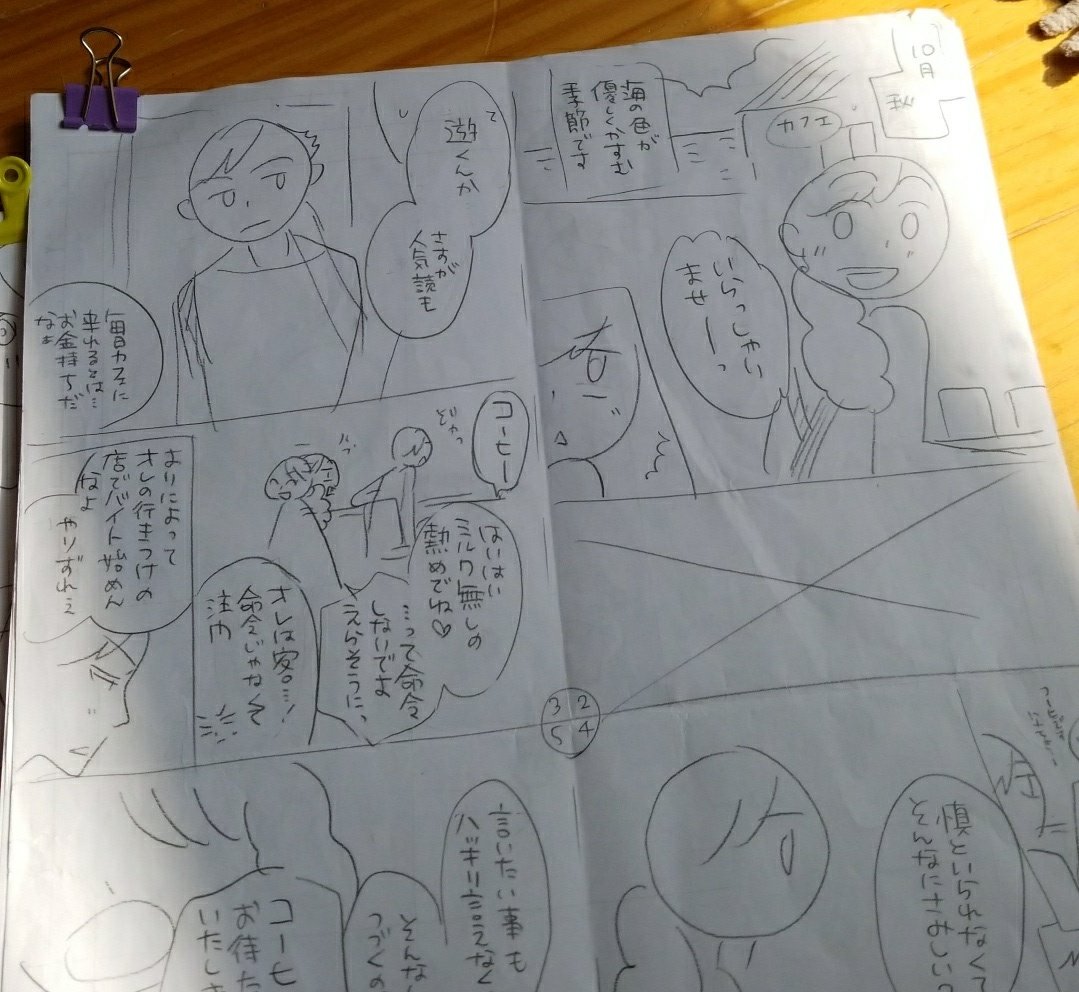 10月
秋
カフェ
海の色が
優しくかすむ
季節です
いらっしゃい
ませーっ
て
遊くんか
さすが
人気読モ
毎日カフェに
来れるとは…
お金持ちだ
なぁ
コーヒー
はいはい
ミルク無しの
熱めでね♡
…って命令
しないですよ
えらそうにっ
オレは客…!
命令じゃなくて
注文
よりによって
オレの行きつけの
店でバイト始めん
なよ
やりずれぇ
3 2
5 4
慎といられなくて
そんなにさみしいっ
言いたい事も
ハッキリ言えなく
そんな
つづくの
コーヒ
お待た
いたしま